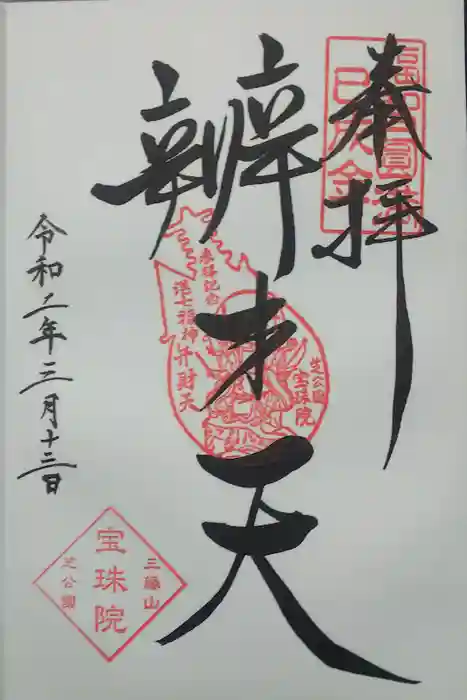 奉拝
巳成金
辨才天
参拝記念
港七福神弁財天
芝公園
宝珠院
令和八年三月十三日
三縁山
宝珠院
芝公園